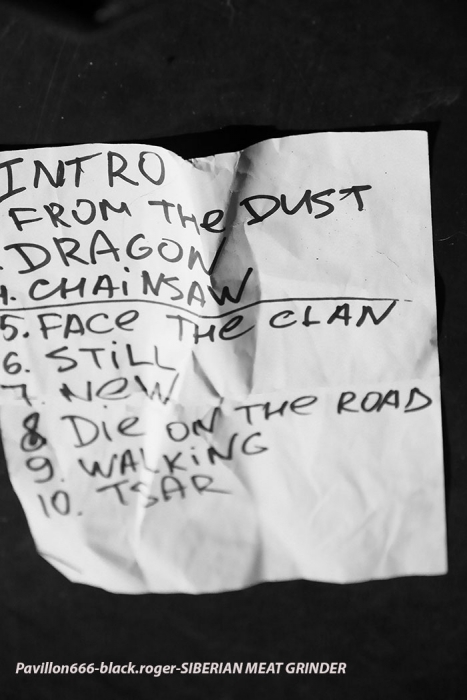 INTRO
FROM THe DUST
. DRAGON
4. CHAiNSAW
5. FACe THe CLAN
6. STiLL
7. NeW
8 Die ON THe ROAD
9. WALKiNG
10. TSAR
Pavillon666-black.roger-SIBERIAN MEAT GRINDER